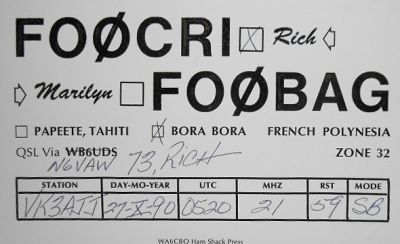 FOØCRI ☒ Rich
Marilyn ☐ FOØBAG
☐ PAPEETE, TAHITI ☒ BORA BORA FRENCH POLYNESIA
QSL Via WB6UDS ZONE 32
N6VAW 73, RICH
STATION DAY-MO-YEAR UTC MHZ RST MODE
VK3ATJ 27-X-90 0520 21 59 SB
WA6CBQ Ham Shack Press